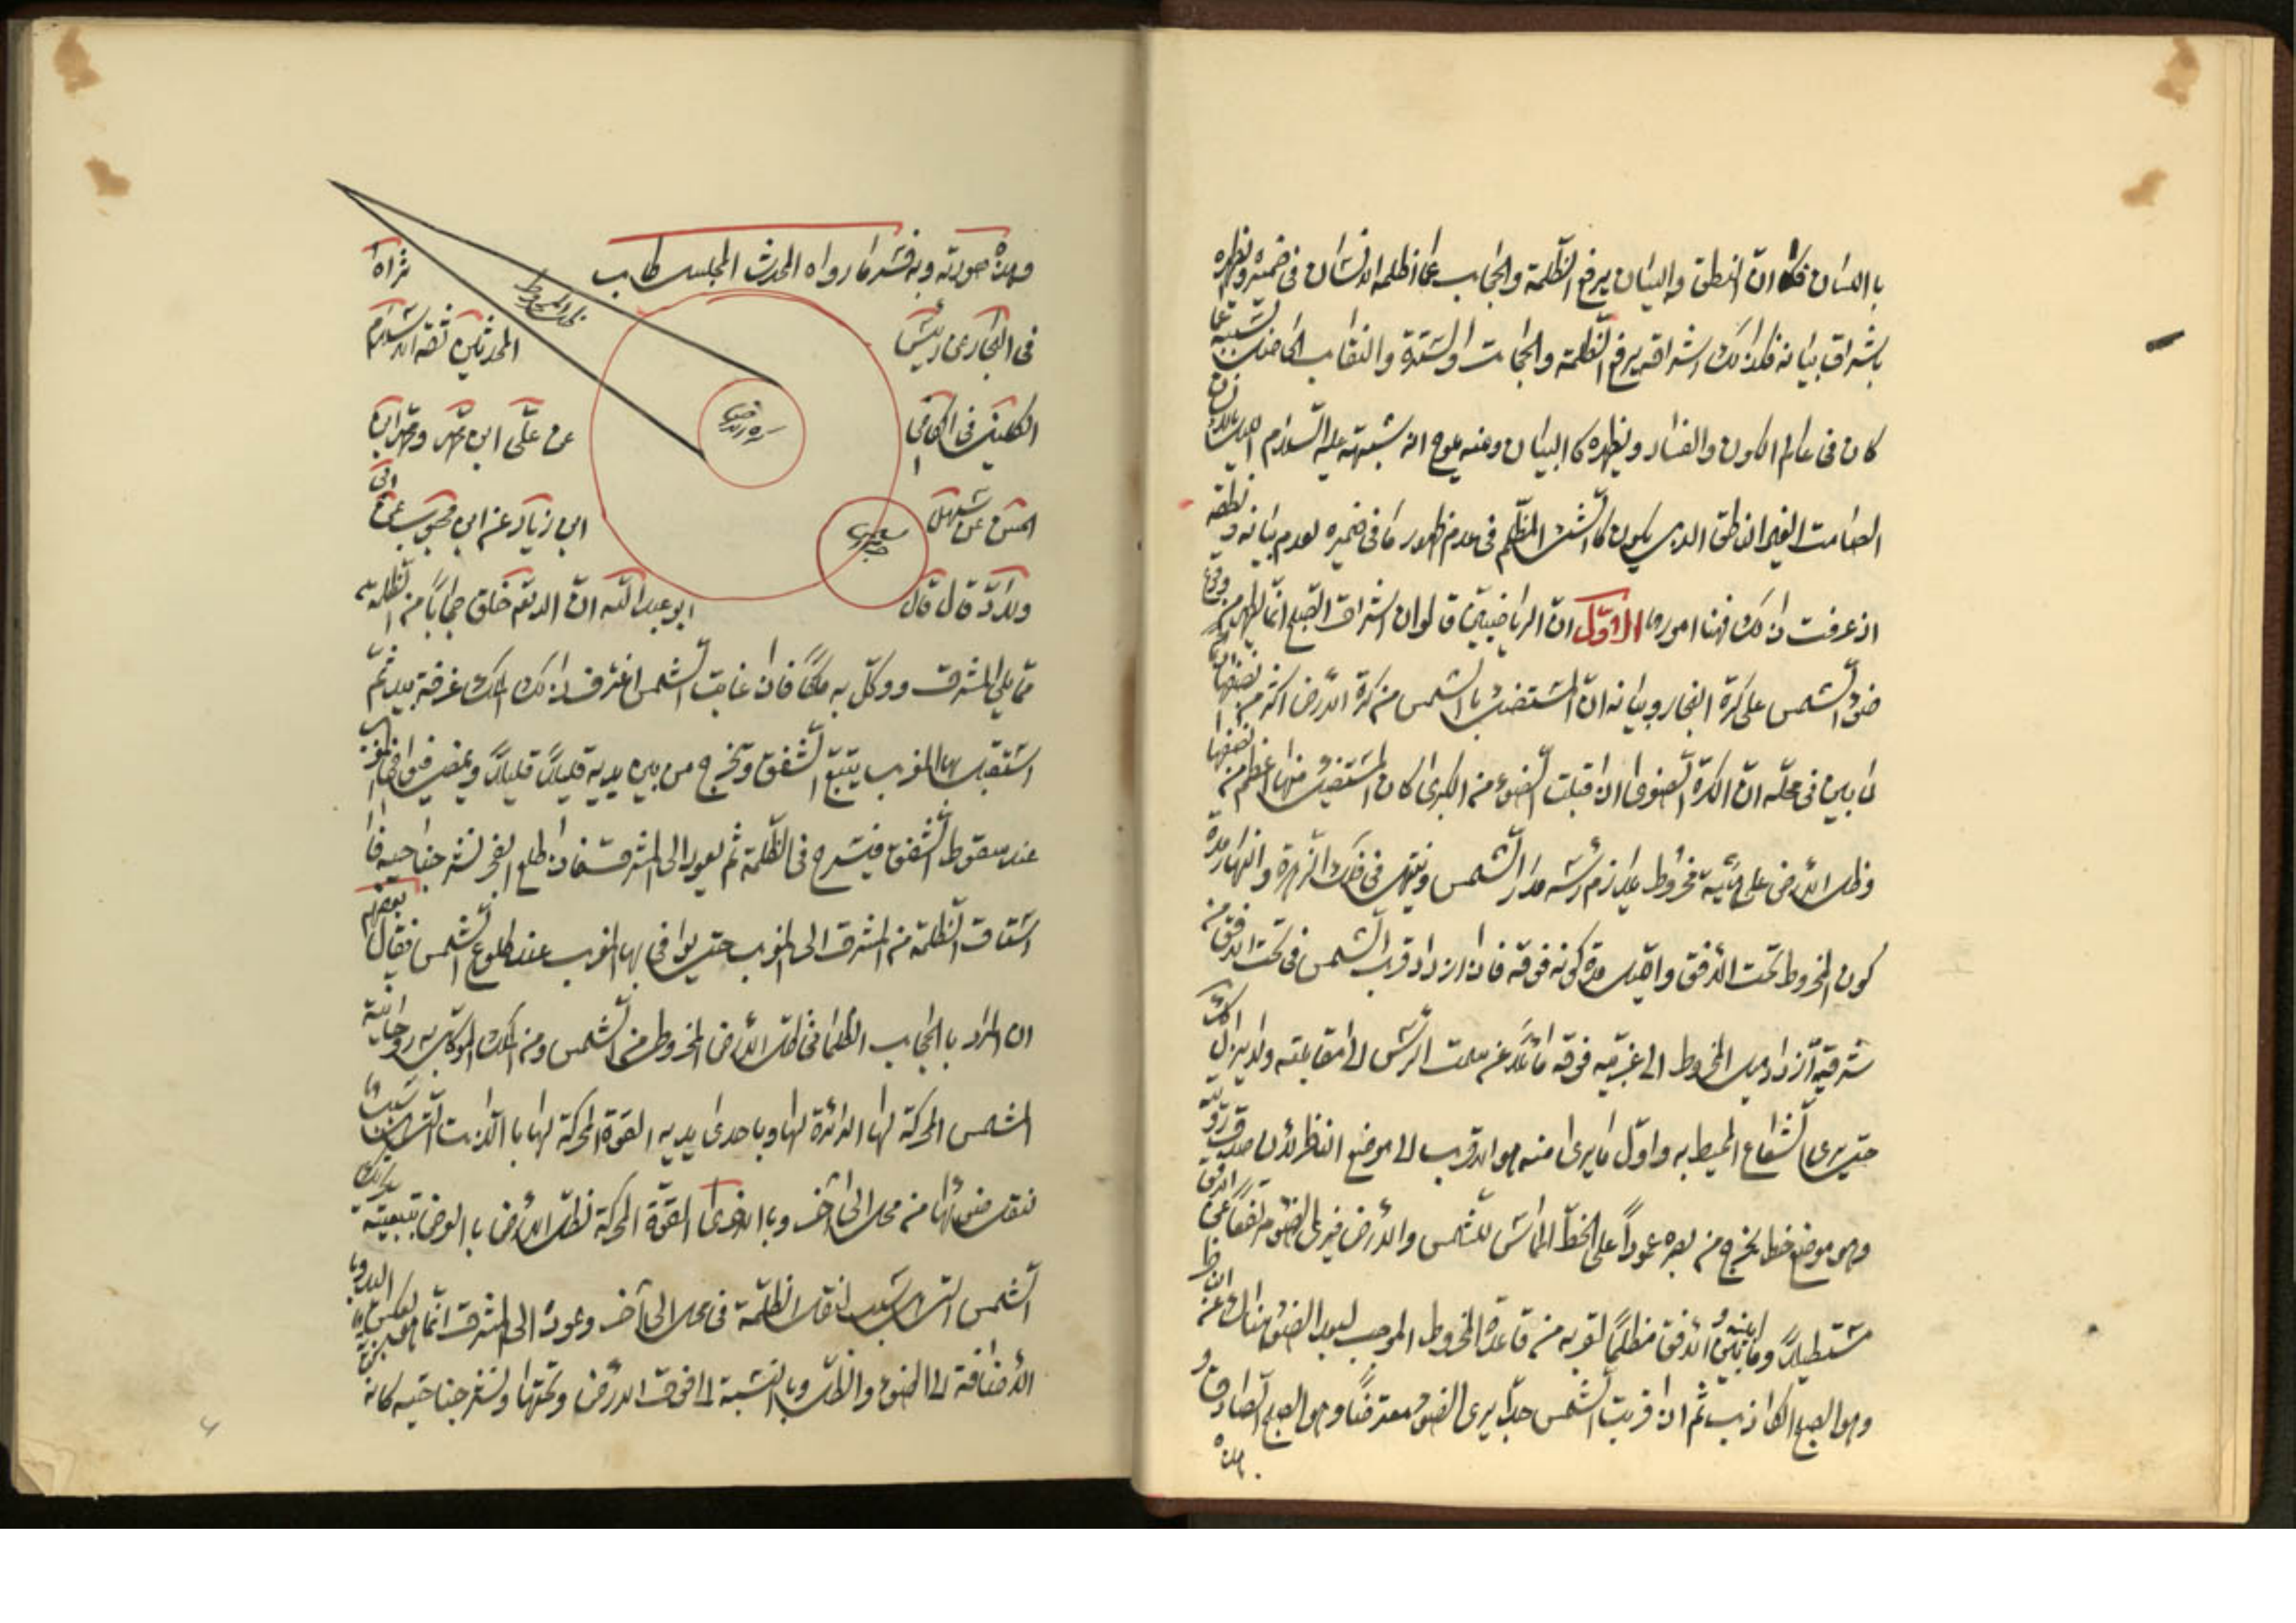 باللسان فكما ان النطق والبيان يرفع الظلمة والحجاب عما اظلمه الانسان في ضميره ويظهره
باشراق بيانه فكذلك اشراقه يرفع الظلمة والحجابت والسترة والنقاب
كان في عالم الكون والفساد ويظهره كالبيان ومنه يلوح انه شبهه عليه السلام الليل
الصامت الغير الناطق الذي يكون كالشئ المظلم في عدم ظهور ما في ضميره لعدم بيانه ونطقه
اذ عرفت ذلك فهنا امور الاول ان الرياضيين قالوا ان اشراق الصبح انما يظهر من وقوع
ضوء الشمس على كرة البخار وبيانه ان المستضئ بالشمس من كرة الارض اكثر من نصفها
لما بين في محله ان الكرة الصغرى اذا قبلت الضوء من الكبرى كان المستضئ منها اعظم من نصفها
وظل الارض على هيئة مخروط يلازم رأسه مدار الشمس وينتهي في فلك الزهرة والنهار مدة
كون المخروط تحت الافق والليل مدة كونه فوقه فاذا ازداد قرب الشمس في تحت الافق من
شرقية ازداد ميل المخروط الى غربيه فوقه مائلا عن سمت الرأس الى مقابلته ولا يزال
حتى يرى الشعاع المحيط به واول ما يرى منه هو الاقرب الى موضع الناظر لان صدق رؤيته
وهو موضع خط يخرج من بصره عمودا على الخط المماس للشمس والارض فيرى الضوء مرتفعا عن الافق
مستطيلا وما بينه وبين الافق مظلما لقربه من قاعدة المخروط الموجب لبعد الضوء هناك عن
وهو الصبح الكاذب ثم اذا قربت الشمس جدا يرى الضوء معترضا وهو الصبح الصادق و
هذه
وهذه صورته وبه فسر ما رواه المحدث المجلسي طاب ثراه
في البحار عن رئيس المحدثين ثقة الاسلام
الكليني في الكافي عن علي ابن محمد ومحمد ابن
الحسن عن سهل ابن زياد عن ابن محبوب عن ابي
ولاد قال قال ابو عبد الله ان الله خلق حجابا من ظلمة
مما يلي المشرق ووكل به ملكا فاذا غابت الشمس اغترف ذلك الملك غرفة بيده ثم
استقبل بها المغرب يتبع الشفق ويخرج من بين يديه قليلا قليلا ويمضي فيوافي المغرب
عند سقوط الشفق فيسرح في الظلمة ثم يعود الى المشرق فاذا طلع الفجر نشر جناحيه فا
استاق الظلمة من المشرق الى المغرب حتى يوافي بها المغرب عند طلوع الشمس فقال بعضهم
ان المراد بالحجاب الظلماني ظل الارض المخروط من الشمس ومن الملك الموكل به روحانية
الشمس المحركة لها الدائرة لها وباحدى يديه القوة المحركة لها بالذات التي هي سبب
نقل ضوئها من محل الى آخر وبالاخرى القوة المحركة لظل الارض بالعرض بتبعية
الشمس التي هي سبب لنقل الظلمة في محل الى آخر وعوده الى المشرق انما هو بعكس البدو
الاضافة الى الضوء والظل وبالنسبة الى فوق الارض وتحتها ونشر جناحيه كانه
ظل المخروط
كرة الارض
جرم الشمس